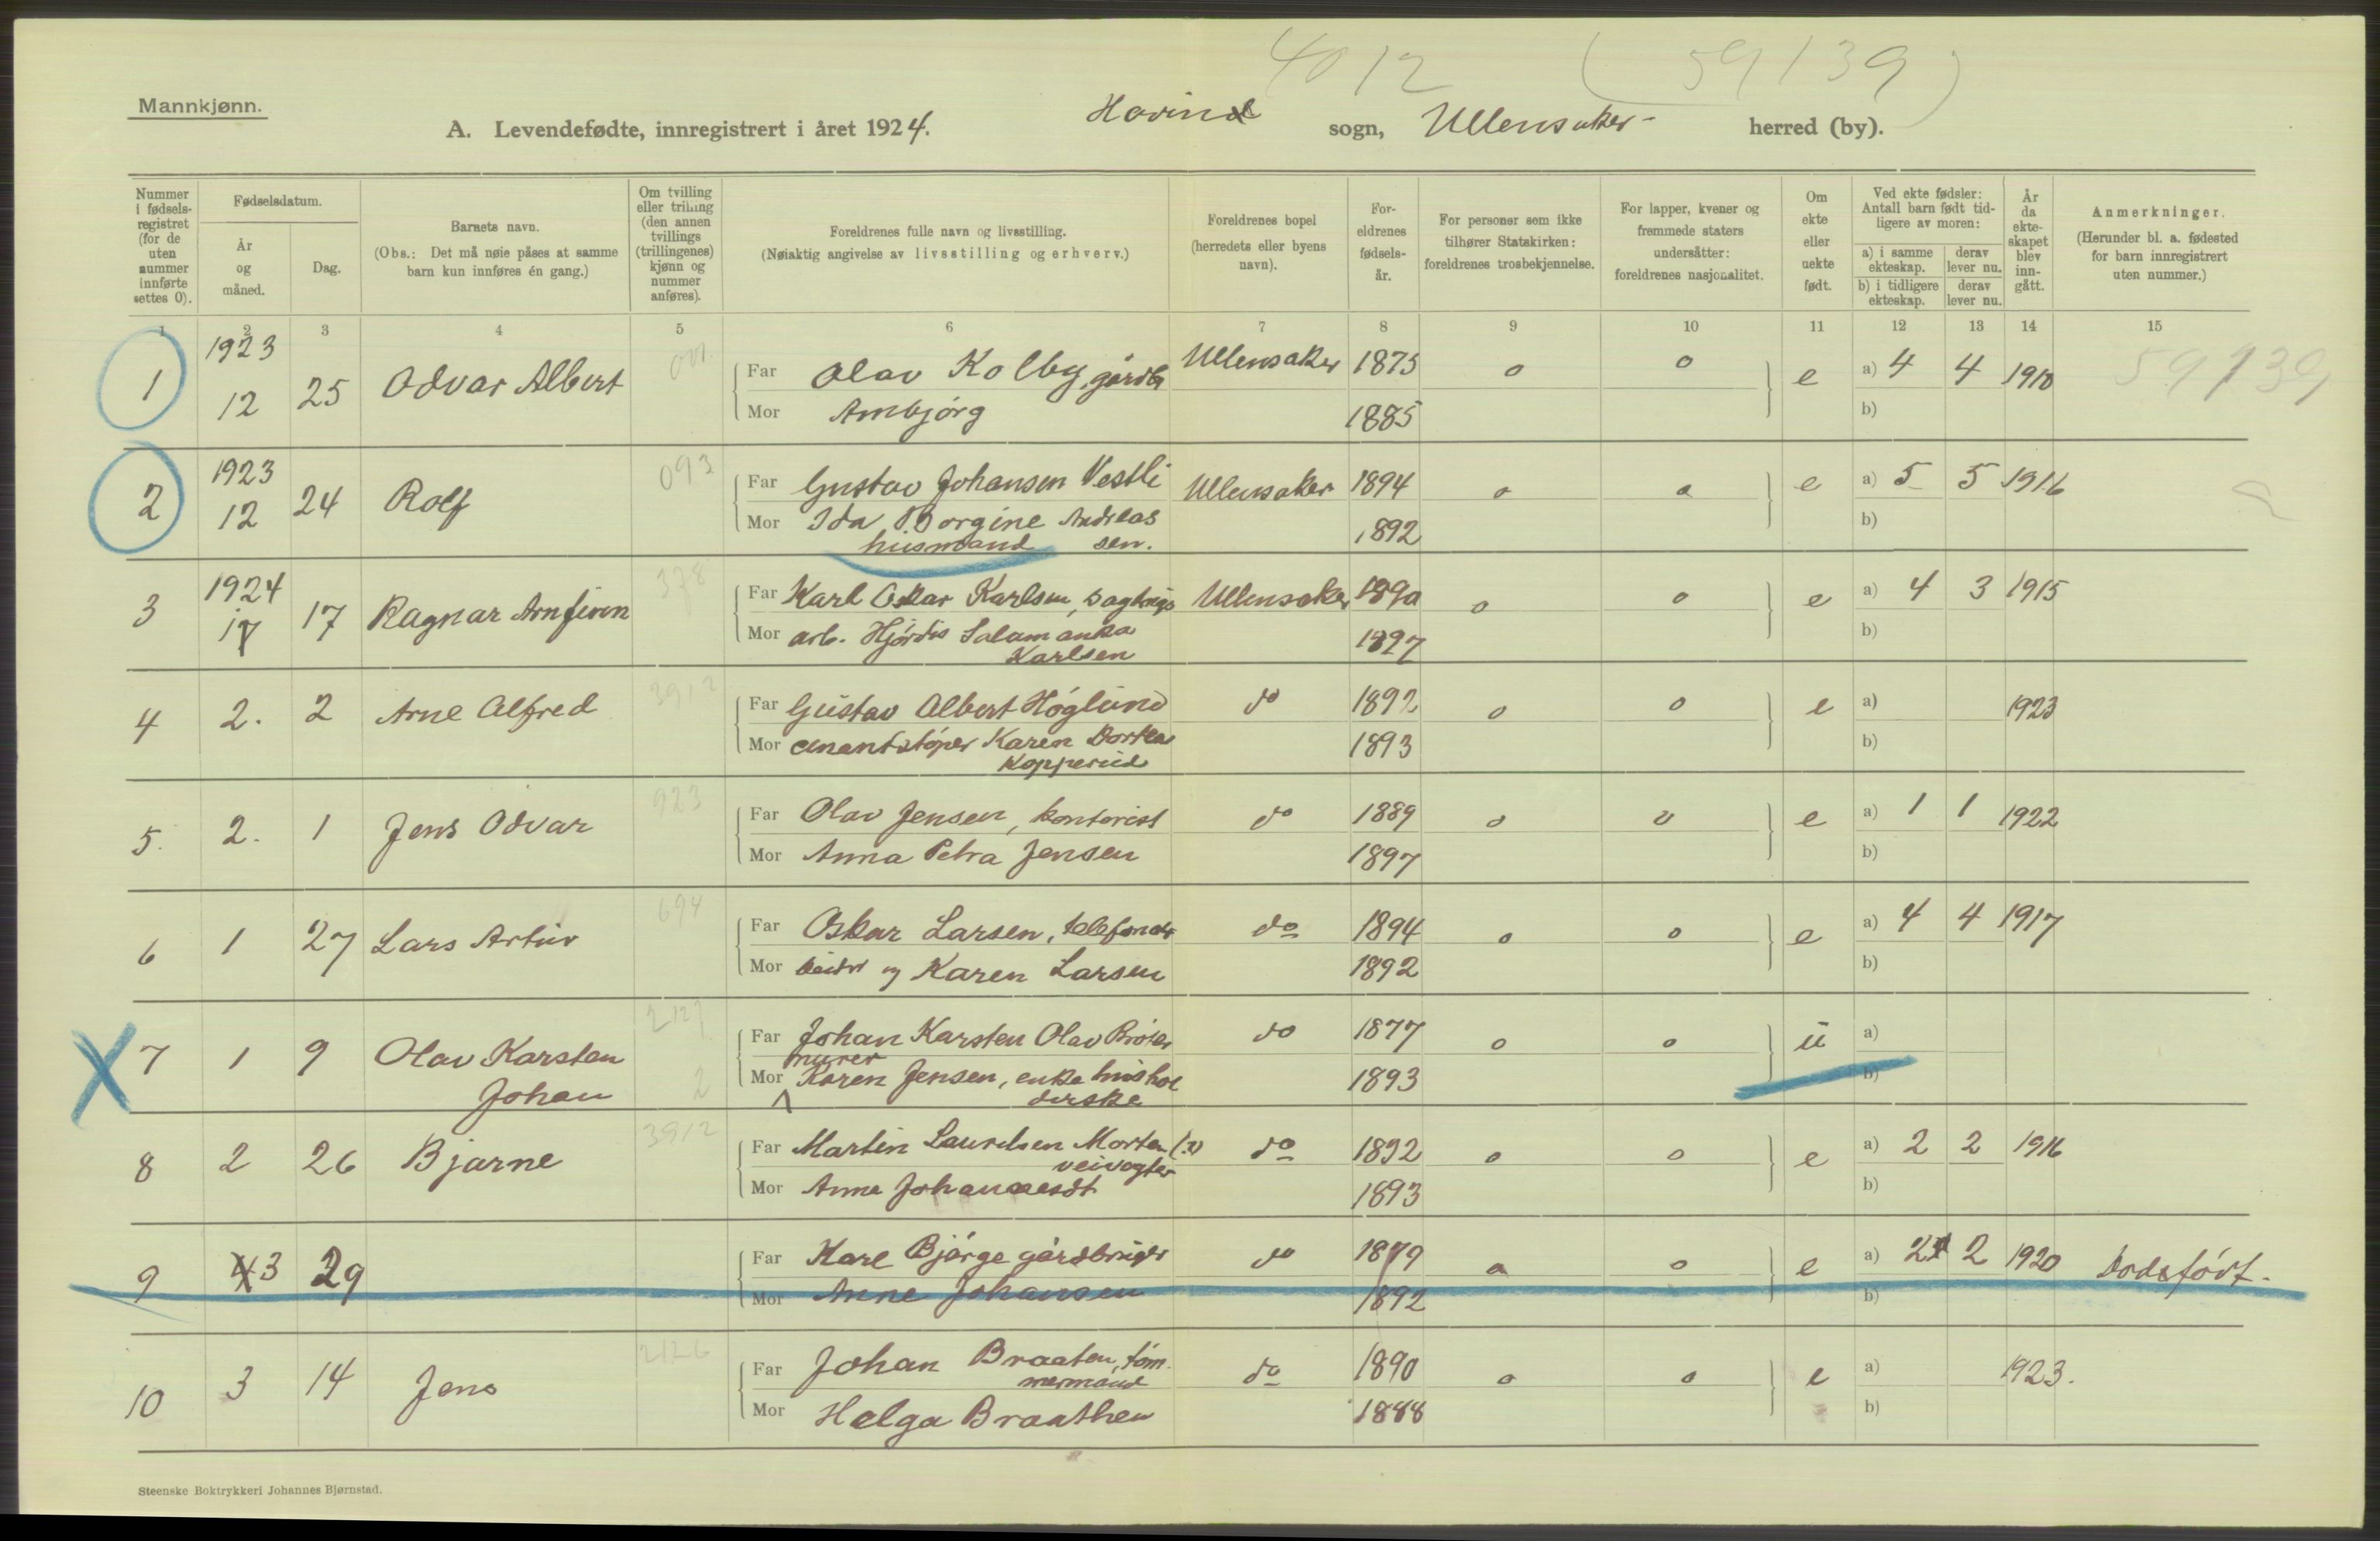 4012 (59139)
Mannkjønn.
A. Levendefødte, innregistrert i året 1924. Hovind sogn, Ullensaker herred (by).
Nummer i fødsels-registret (for de uten nummer innførte settes 0).
Fødselsdatum.
År og måned.
Dag.
Barnets navn.
(Obs.: Det må nøie påses at samme barn kun innføres én gang.)
Om tvilling eller trilling (den annen tvillings (trillingenes) kjønn og nummer anføres).
Foreldrenes fulle navn og livsstilling.
(Nøiaktig angivelse av livsstilling og erhverv.)
Foreldrenes bopel (herredets eller byens navn).
For-eldrenes fødsels-år.
For personer som ikke tilhører Statskirken: foreldrenes trosbekjennelse.
For lapper, kvener og fremmede staters undersåtter: foreldrenes nasjonalitet.
Om ekte eller uekte født.
Ved ekte fødsler: Antall barn født tid-ligere av moren:
a) i samme ekteskap. derav lever nu.
b) i tidligere ekteskap. derav lever nu.
År da ekte-skapet blev inn-gått.
Anmerkninger.
(Herunder bl. a. fødested for barn innregistrert uten nummer.)
1 2 3 4 5 6 7 8 9 10 11 12 13 14 15
1 1923 12 25 Odvar Albert Far Olav Kolby, gårdbr Ullensaker 1875 o o e a) 4 4 1910 59139
Mor Ambjørg 1885 b)
2 1923 12 24 Rolf 093 Far Gustav Johansen Vestli Ullensaker 1894 o o e a) 5 5 1916
Mor Ida Borgine Andreas 1892 b)
husmand sen.
3 1924 17 Ragnar Arnfinn 378 Far Karl Oskar Karlsen, sagbrugs Ullensaker 1890 o o e a) 4 3 1915
Mor arb. Hjørdis Salamanka 1897 b)
Karlsen
4 2. 2 Arne Alfred 3912 Far Gustav Albert Höglund do 1892 o o e a) 1923
Mor cementstøper Karen Dortea 1893 b)
Kopperud
5. 2. 1 Jens Odvar 923 Far Olav Jensen, kontorist do 1889 o o e a) 1 1 1922
Mor Anna Petra Jensen 1897 b)
6 1 27 Lars Artur 694 Far Oskar Larsen, telefonar do 1894 o o e a) 4 4 1917
Mor beider og Karen Larsen 1892 b)
7 1 9 Olav Karsten 2127 Far Johan Karsten Olav do 1877 o o u a)
Johan 2 murer
Mor Karen Jensen, enke hushol 1893 b)
derske
8 2 26 Bjarne 3912 Far Martin Lauritsen Morten do 1892 o o e a) 2 2 1916
veivogter
Mor Anna Johannesdt 1893 b)
9 3 29 Far Karl Bjørge gårdbruger do 1879 o o e a) 2 2 1920 Dodsfödt.
Mor Anne Johansen 1892 b)
10 3 14 Jens 2126 Far Johan Braaten, töm- do 1890 o o e a) 1923.
mermand
Mor Helga Braathen 1888 b)
Steenske Boktrykkeri Johannes Bjørnstad.